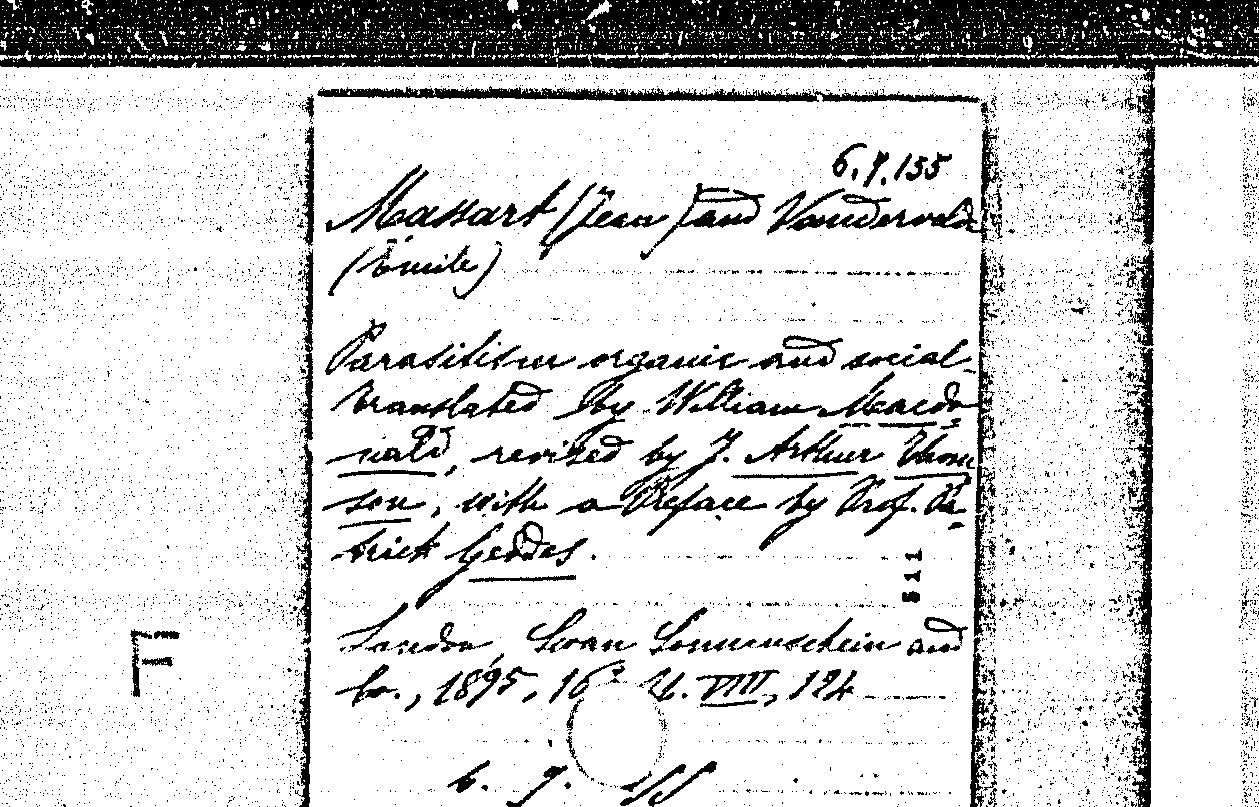 6.9.155
Massart (Jean) and Vandervelde
(Émile)
Parasitism organic and social-
translated by William Macdo-
nald, revised by J. Arthur Thom
son, with a Preface by Prof. Pa-
trick Geddes.
511
London, Swan Sonnenschein and
Co., 1895, 16° VIII, 124
F
6. 9. 155